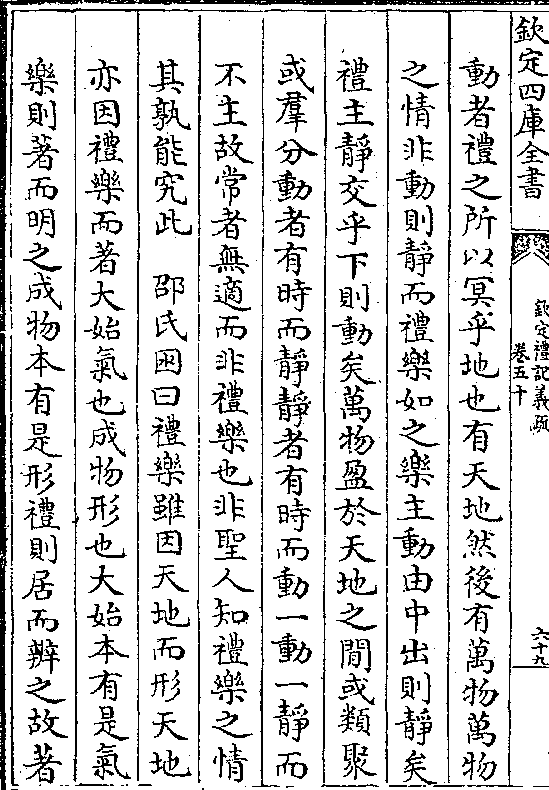 欽定四庫全書
欽定禮記義疏
卷五十
六十九
動者禮之所以冥乎地也有天地然後有萬物萬物
之情非動則靜而禮樂如之樂主動由中出則靜矣
禮主靜交乎下則動矣萬物盈於天地之間或類聚
或羣分動者有時而靜靜者有時而動一動一靜而
不主故常者無適而非禮樂也非聖人知禮樂之情
其孰能究此　邵氏囦曰禮樂雖因天地而形天地
亦因禮樂而著大始氣也成物形也大始本有是氣
樂則著而明之成物本有是形禮則居而辨之故著